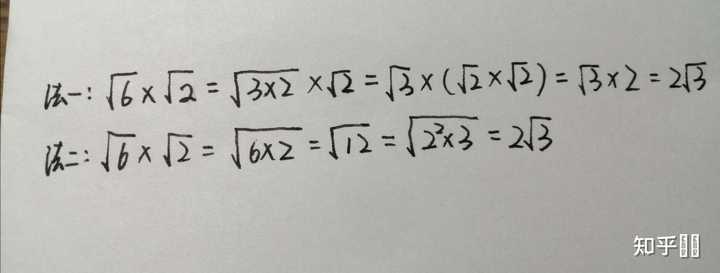 法一: √6 × √2 = √(3×2) × √2 = √3 × (√2 × √2) = √3 × 2 = 2√3
法二: √6 × √2 = √(6×2) = √12 = √(2²×3) = 2√3
知乎